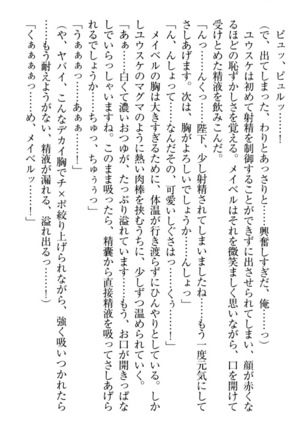 ピュッ、ピュルッ――！
（で、出てしまった、わりとあっさりと……興奮しすぎだ、俺……っ）
ユウスケは初めて射精を制御することができずに出させられてしまい、顔が赤くな
るほどの恥ずかしさを覚える。メイベルはそれを微笑ましく思いながら、口を開けて
受けとめた精液を飲みこんだ。
「んっ……んくっ……陛下、少し射精されてしまいましたね……もう一度元気にして
さしあげます。次は、胸がよろしいでしょうか……んしょっ」
「な、んしょって……なんだその、可愛いしぐさは……くぅ……！」
メイベルの胸が大きすぎるために、体温が行き渡らずにひんやりとしている。しか
しユウスケのマグマのように熱い肉棒を挟むうちに、少しずつ温められていく。
「あぁ……白くて濃いおつゆが、たっぷり溢れています……もう、お口が開きっぱな
しでいらっしゃいますね。このまま吸ったら、精嚢から直接精液を吸ってさしあげら
れるでしょうか……ちゅっ、ちゅぅっ」
「うぁぁぁっ……あ、あぁぁ……っ！」
（や、ヤバイ、こんなデカイ胸でチ×ポ絞り上げられながら、強く吸いつかれたら
……もう耐えようがない、精液が漏れる、溢れ出るっ……！）
「くぁぁぁぁっ……め、メイベルッ……！」